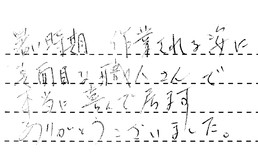 暑い時期 作業される姿に
真面目な職人さんで
本当に喜んで居ます
ありがとうございました。